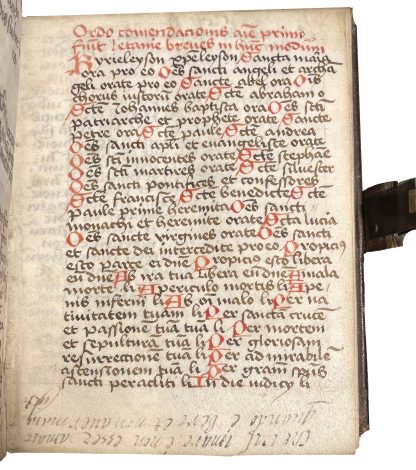 Ordo comendacionis aīe primo
fiūt letanie breues in hūc modum
Kyrieleyson xp̄eleyson Sancta maria
ora pro eo Oēs sancti angeli et archā
geli orate pro eo Sancte abel ora Oīs
chorus iustorū orate Sctē abrahamo
Sctē Iohannes baptista ora Oēs sctī
patriarche et prophete orate Sancte
petre ora Sctē paule Sctē andrea
Oēs sancti apl̄i et euangeliste orate
Oēs sctī innocentes orate Sctē stephae
Oēs sctī martires orate Sctē siluester
Oēs sancti pontifices et confessores
Sctē francisce Sctē benedicte Sctē
paule prime heremita Oēs sancti
monachi et heremite orate Sctā lucia
Oēs sancte virgines orate Oēs sancti
et sancte dei intercedite pro eo Propicius
esto parce ei dn̄e Propicio esto libera
eū dn̄e Ab ira tua libera eū dn̄e A mala
morte li A periculo mortis li A pe
nis inferni li Ab oī malo li Per na
tiuitatem tuam li Per sanctā crucē
et passionē tuā li Per mortem
et sepulturā tuā li Per gloriosam
resurrectionē tuā li Per ad mirabilē
ascensionem tuā li Per gram̄ spūs
sancti peracliti li In die iudicij li